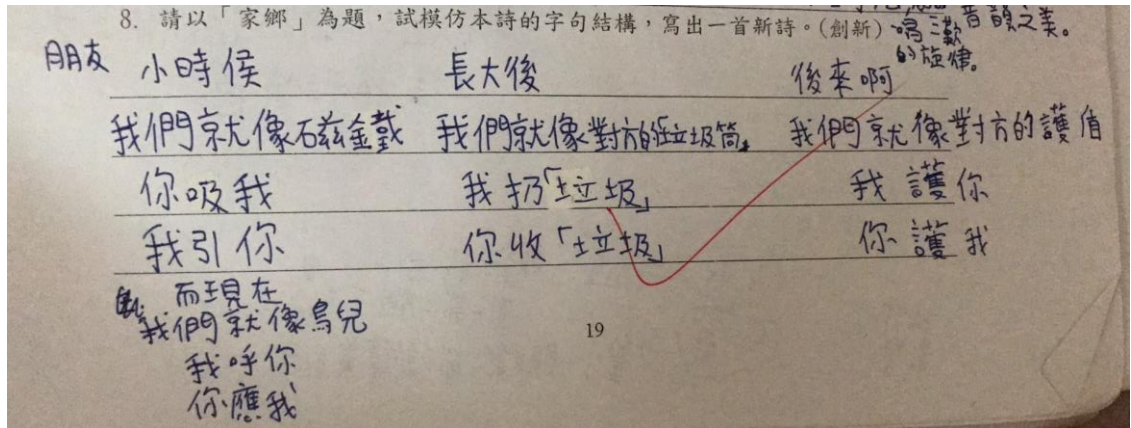 8. 請以「家鄉」為題，試模仿本詩的字句結構，寫出一首新詩。(創新)
音韻之美。
的旋律。
朋友
小時侯
我們就像磁鐵
你吸我
我引你
長大後
我們就像對方的垃圾筒
我扔「垃圾」
你收「垃圾」
後來啊
我們就像對方的護盾
我護你
你護我
而現在
我們就像鳥兒
我呼你
你應我
19